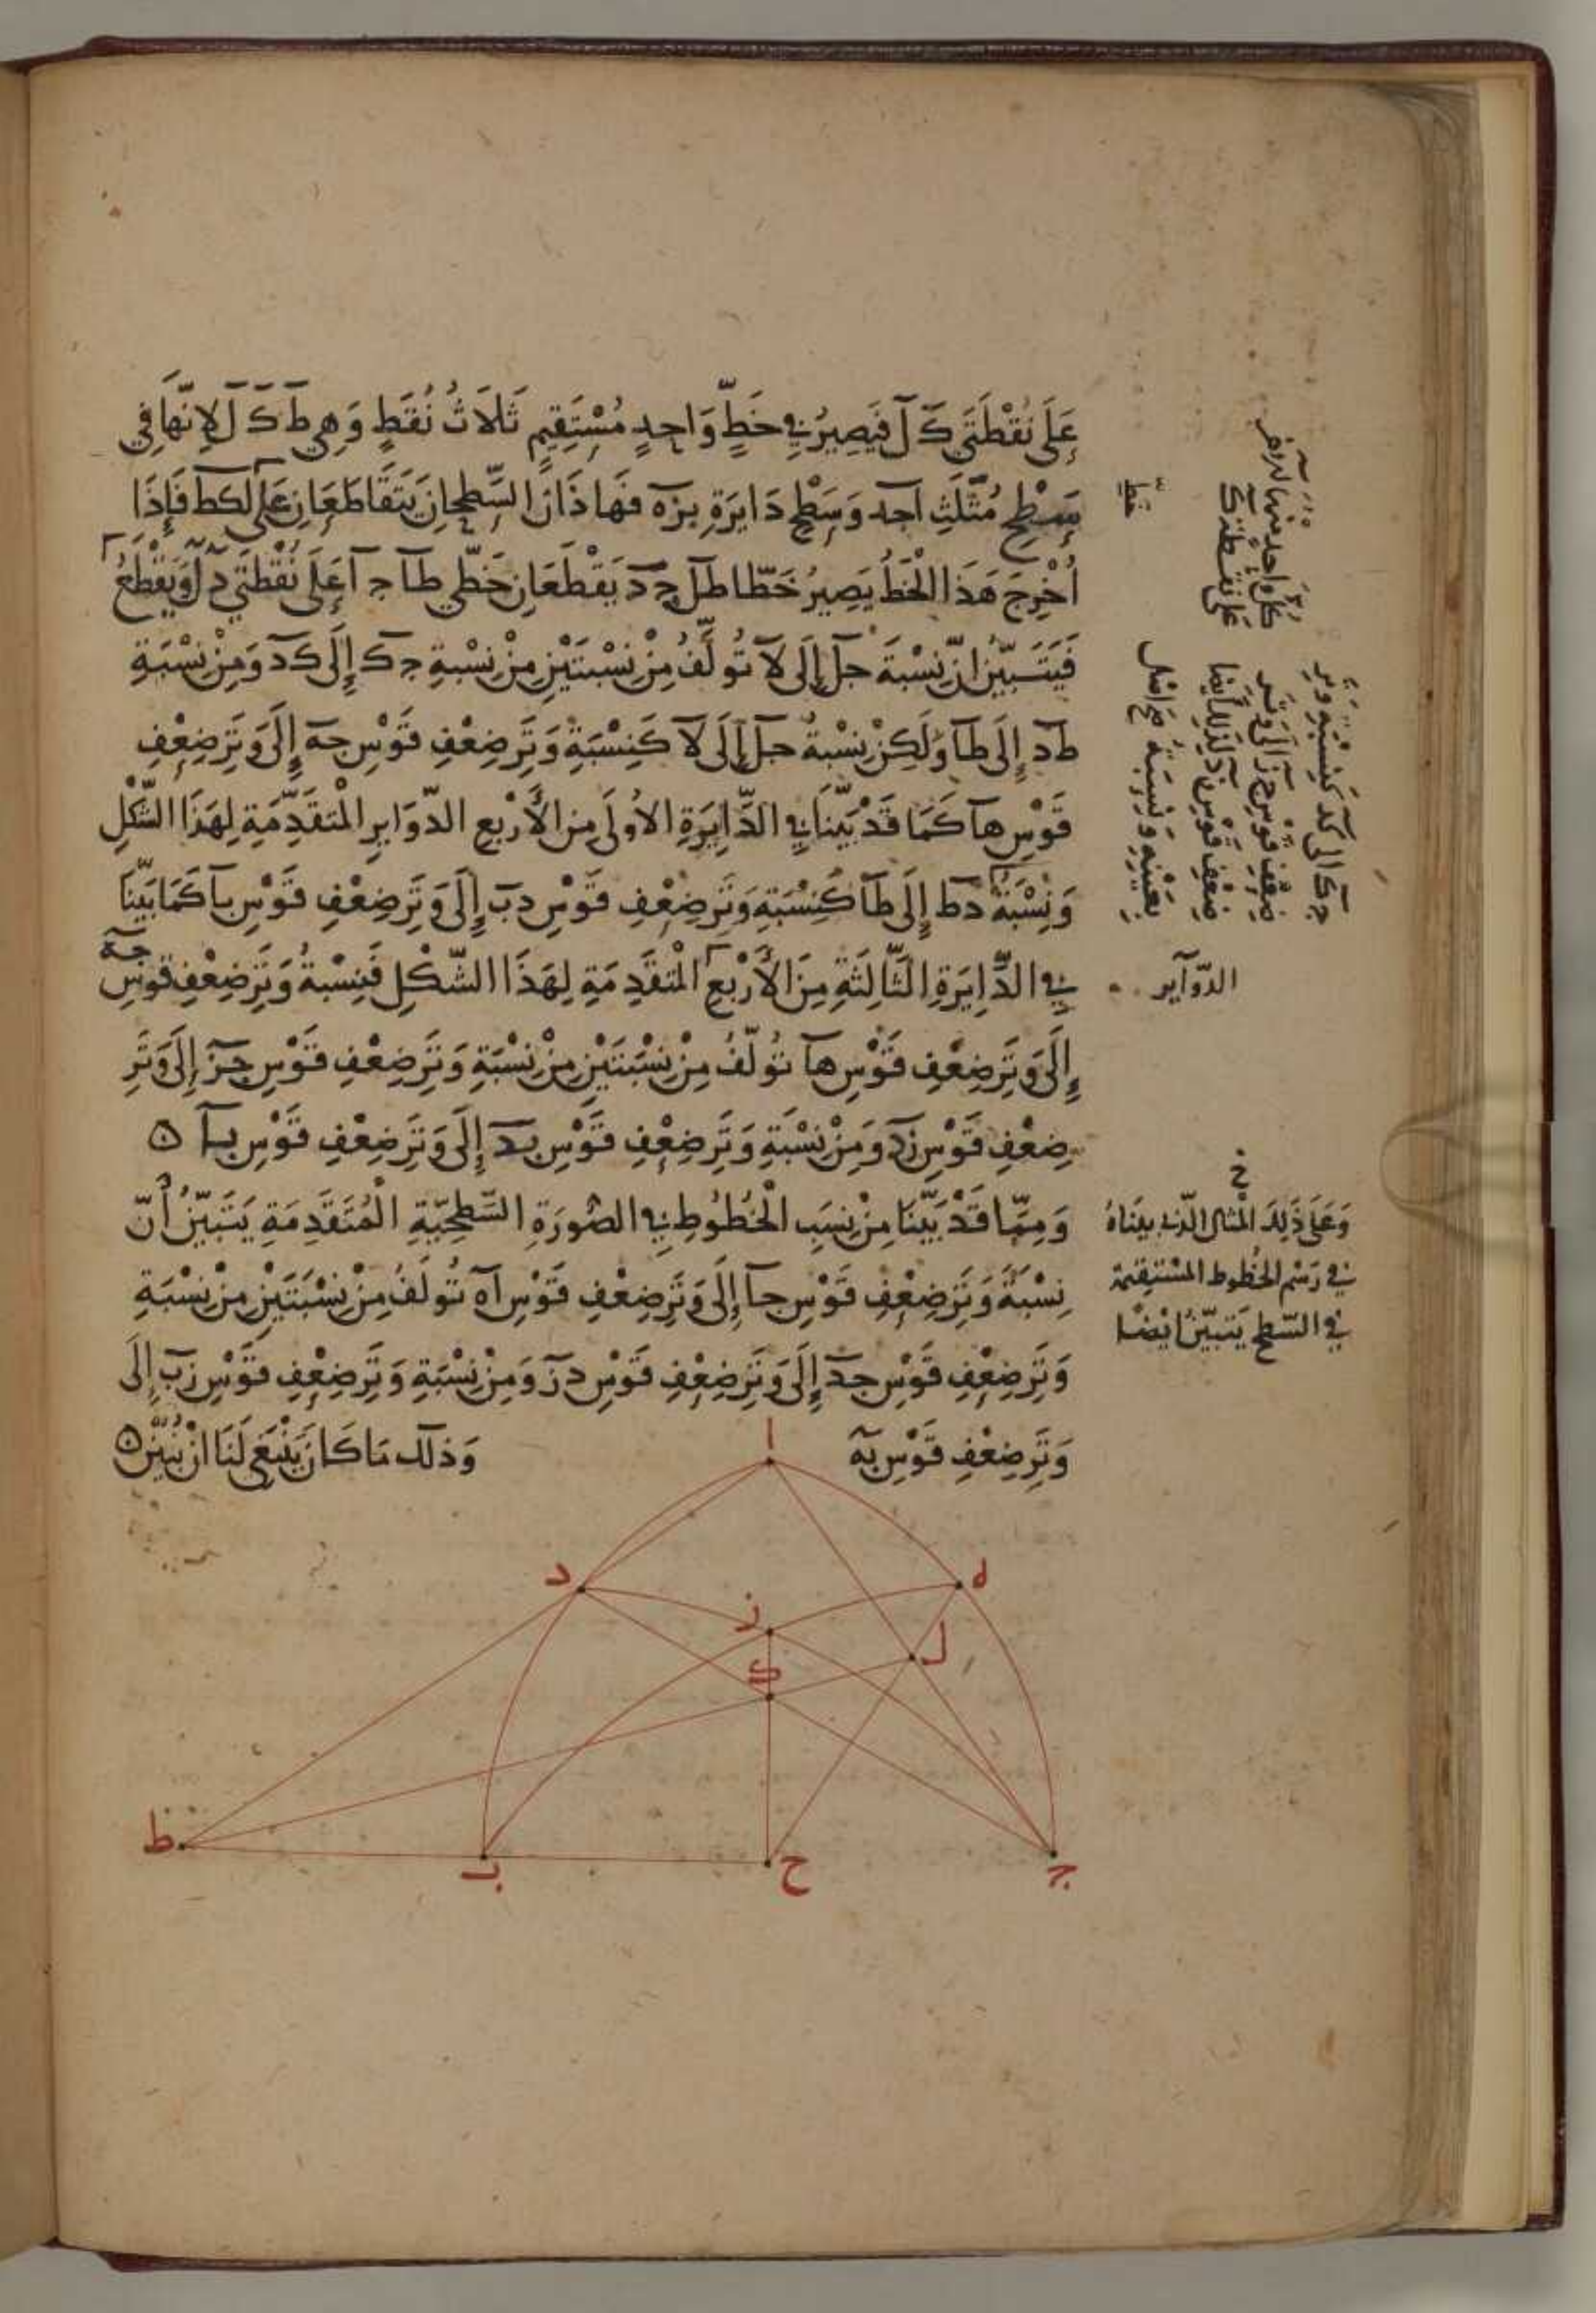 عَلَى نُقْطَتَي كَ لَ فَيَصِيرُ فِي خَطٍّ وَاحِدٍ مُسْتَقِيمٍ ثَلَاثُ نُقَطٍ وَهِي طَ كَ لَ لِانَّهَا فِي
سَطْحِ مُثَلَّثِ آجد وَسَطْحِ دَايرَةِ بزه فَهَاذَانِ السَّطْحَانِ يَتَقَاطَعَانِ عَلَى لكط فَإِذَا
أُخْرِجَ هَذَا الْخَطُّ يَصِيرُ خَطَّا طل جد يَقْطَعَانِ خَطَّي طا جا عَلَى نُقْطَتَي دَ لَ وَيَقْطَعُ
فَيَتَبَيَّنُ انَّ نِسْبَةَ جل إِلَى لآ تُولَّفُ مِنْ نِسْبَتَيْنِ مِنْ نِسْبَةِ جك إِلَى كد وَمِنْ نِسْبَةِ
طد إِلَى طآ وَلَكِنْ نِسْبَةُ جل إِلَى لآ كَنِسْبَةِ وَتَرِ ضِعْفِ قَوْسِ جه إِلَى وَتَرِ ضِعْفِ
قَوْسِ هآ كَمَا قَدْ بَيَّنَّا فِي الدَّايِرَةِ الأُولَى مِنَ الأَرْبَعِ الدَّوَايِرِ الْمُتَقَدِّمَةِ لِهَذَا الشَّكْلِ
وَنِسْبَةُ دط إِلَى طآ كَنِسْبَةِ وَتَرِ ضِعْفِ قَوْسِ دب إِلَى وَتَرِ ضِعْفِ قَوْسِ بآ كَمَا بَيَّنَّا
فِي الدَّايِرَةِ الثَّالِثَةِ مِنَ الأَرْبَعِ الْمُتَقَدِمَةِ لِهَذَا الشَّكْلِ فَنِسْبَةُ وَتَرِ ضِعْفِ قوس جه
إِلَى وَتَرِ ضِعْفِ قَوْسِ هآ تُولَّفُ مِنْ نِسْبَتَيْنِ مِنْ نِسْبَةِ وَتَرِ ضِعْفِ قَوْسِ جز إِلَى وَتَرِ
ضِعْفِ قَوْسِ زد وَمِنْ نِسْبَةِ وَتَرِ ضِعْفِ قَوْسِ بد إِلَى وَتَرِ ضِعْفِ قَوْسِ بآ
وَمِمَّا قَدْ بَيَّنَّا مِنْ نِسَبِ الْخُطُوطِ فِي الصُّورَةِ السَّطْحِيَّةِ الْمُتَقَدِمَةِ يَتَبَيَّنُ أَنَّ
نِسْبَةَ وَتَرِ ضِعْفِ قَوْسِ جآ إِلَى وَتَرِ ضِعْفِ قَوْسِ آه تُولَفُ مِنْ نِسْبَتَيْنِ مِنْ نِسْبَةِ
وَتَرِ ضِعْفِ قَوْسِ جد إِلَى وَتَرِ ضِعْفِ قَوْسِ دز وَمِنْ نِسْبَةِ وَتَرِ ضِعْفِ قَوْسِ زب إِلَى
وَتَرِ ضِعْفِ قَوْسِ به وَذلك مَا كَانَ يَنْبَغِي لَنَا انْ نُبَيِّنَ
جـك الى كد كَنِسْبَةِ وتر
ضِعْفِ قَوْسِ جز الى وَتَرِ
ضِعْفِ قَوْسِ زد
الدّوآير
خ
وَعَلَى ذَلِكَ الْمثال الّذي بيناهُ
في رَسْم الخُطوط المُسْتقيمة
في السّطح يَتبيّن ايْضا
ا
د
ه
ز
ل
ك
ط
ب
ح
ج